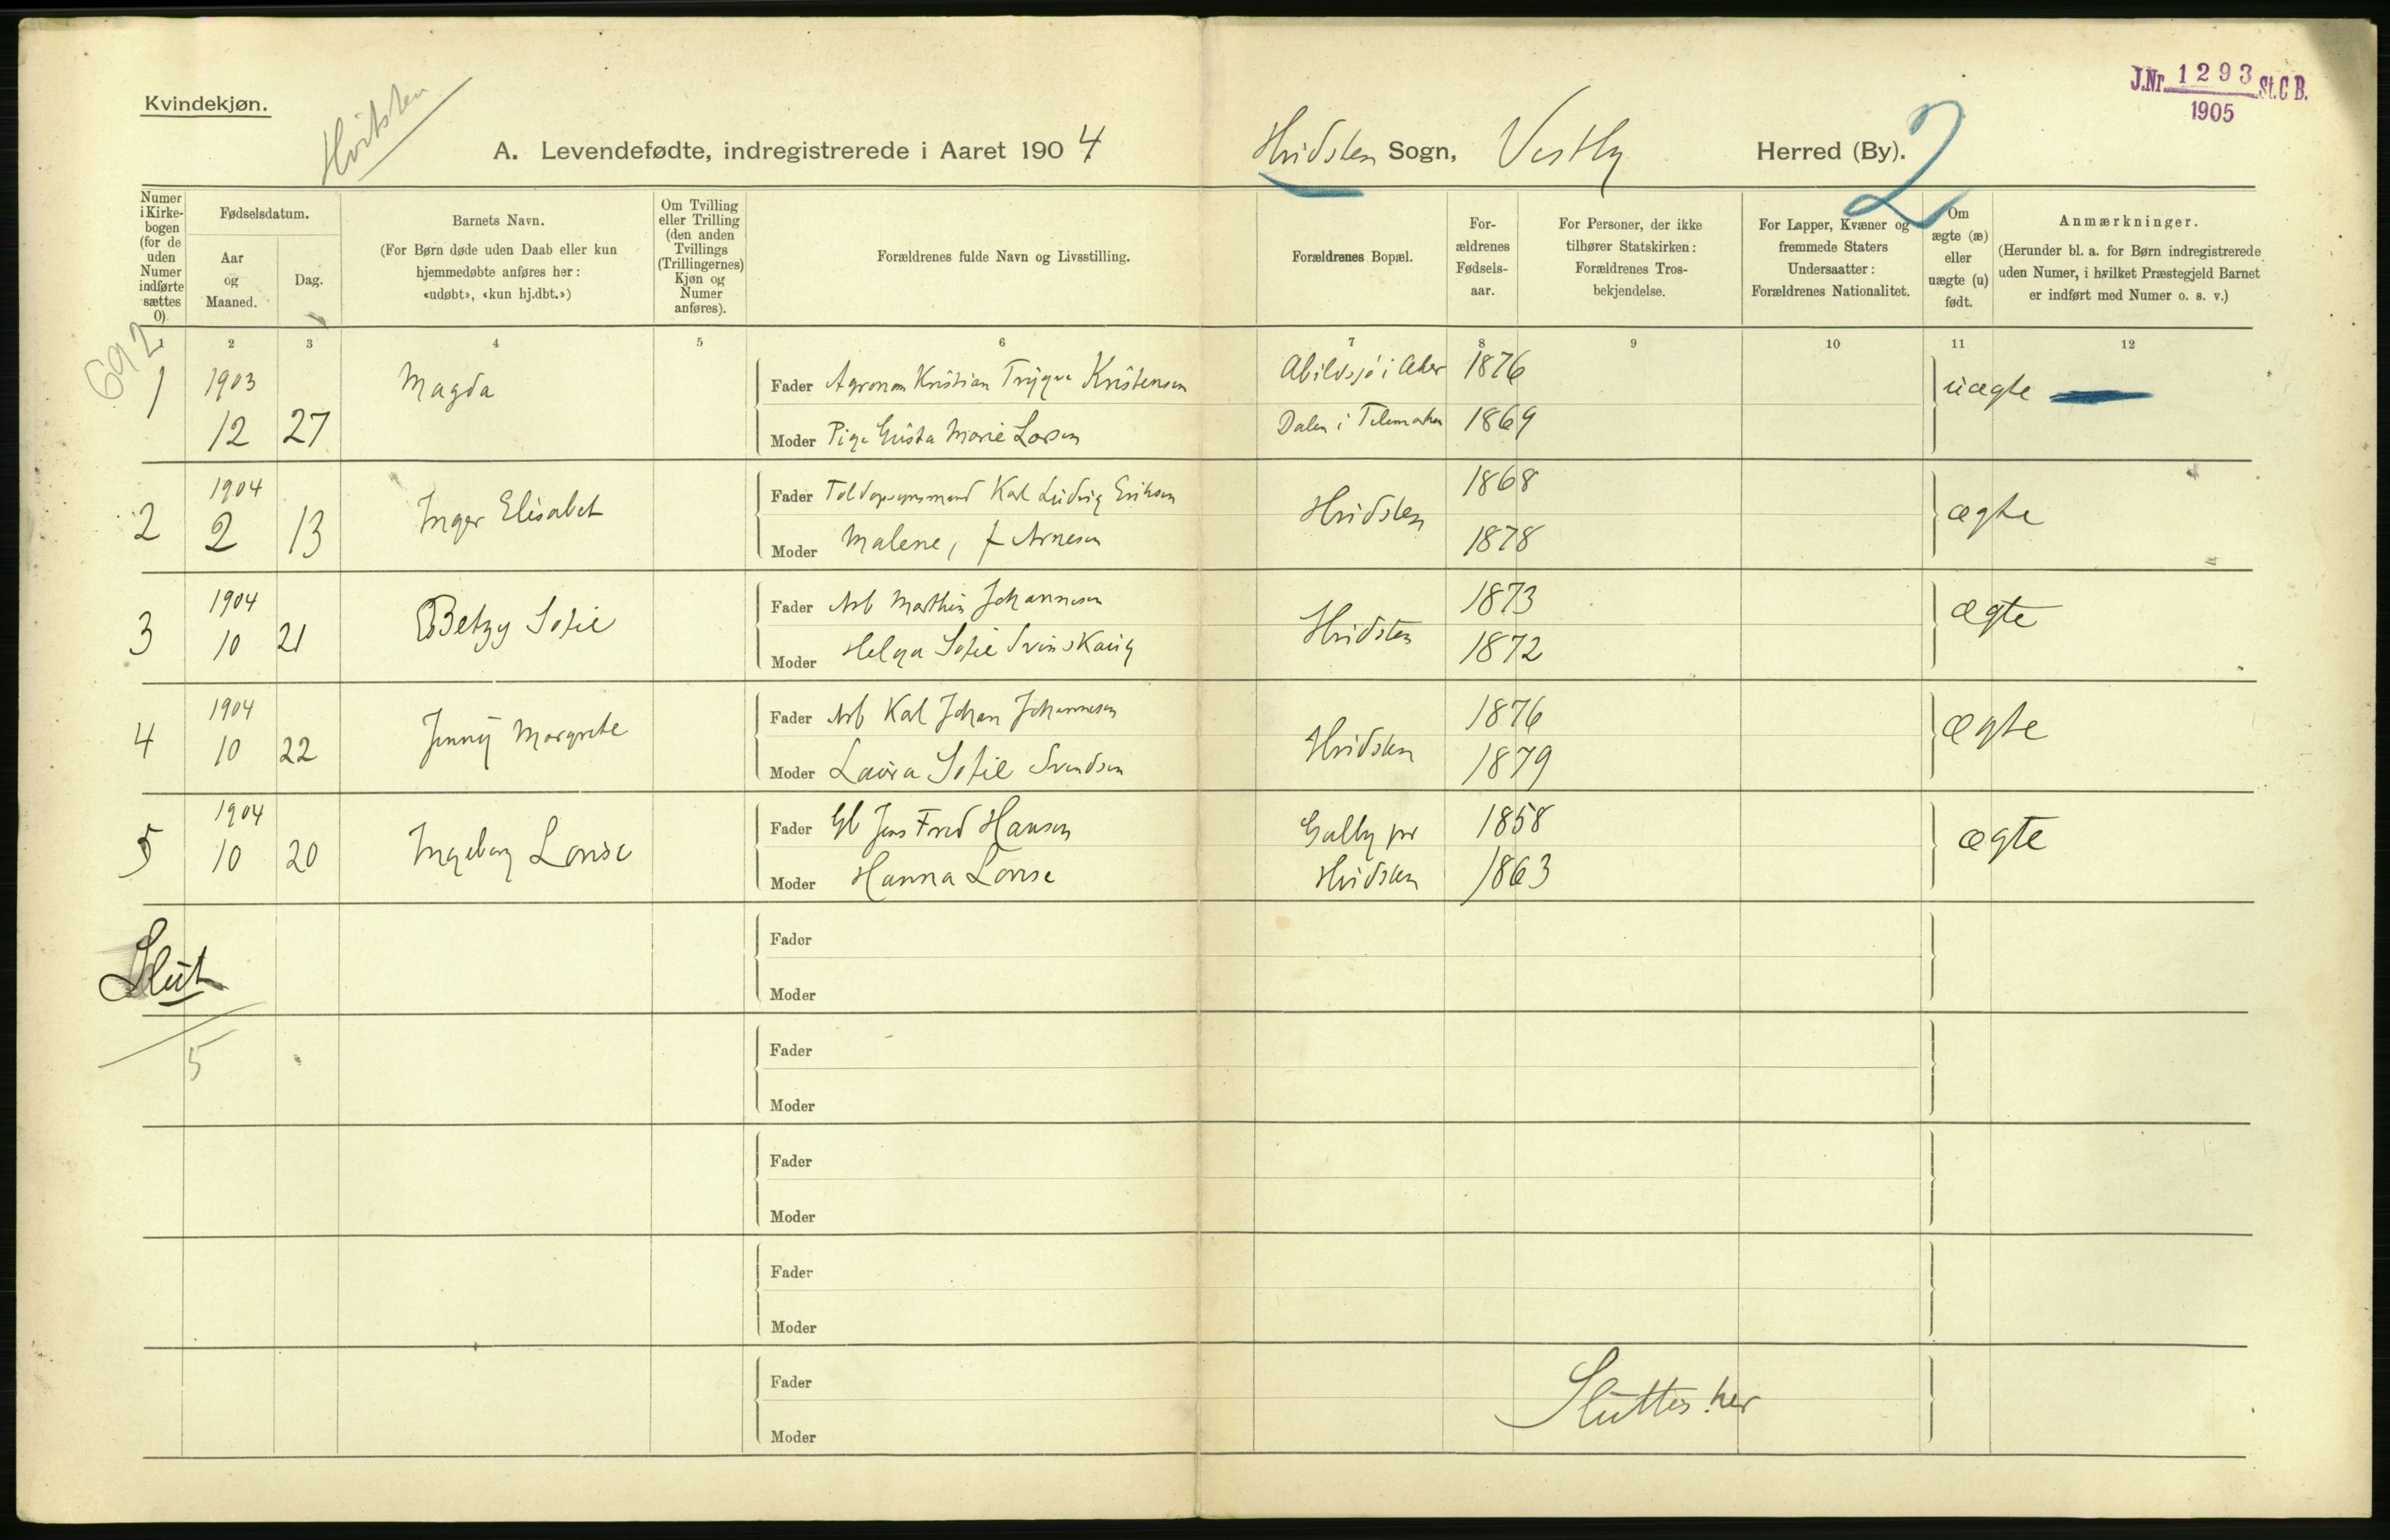 Kvindekjøn.
Hvitsten
J.Nr. 1293 St.C B.
1905
A. Levendefødte, indregistrerede i Aaret 1904
Hvidsten Sogn, Vestby Herred (By). 2
Numer i Kirke-bogen (for de uden Numer indførte sættes 0).
Fødselsdatum.
Aar og Maaned.
Dag.
Barnets Navn.
(For Børn døde uden Daab eller kun hjemmedøbte anføres her: «udøbt», «kun hj.dbt.»)
Om Tvilling eller Trilling (den anden Tvillings (Trillingernes) Kjøn og Numer anføres).
Forældrenes fulde Navn og Livsstilling.
Forældrenes Bopæl.
For-ældrenes Fødsels-aar.
For Personer, der ikke tilhører Statskirken: Forældrenes Tros-bekjendelse.
For Lapper, Kvæner og fremmede Staters Undersaatter: Forældrenes Nationalitet.
Om ægte (æ) eller uægte (u) født.
Anmærkninger.
(Herunder bl. a. for Børn indregistrerede uden Numer, i hvilket Præstegjeld Barnet er indført med Numer o. s. v.)
692
1 2 3 4 5 6 7 8 9 10 11 12
1 1903 12 27 Magda
Fader Agronom Kristian Trygve Kristensen Abildsjø i Aker 1876 uægte
Moder Pige Gusta Marie Larsen Dalen i Telemarken 1869
2 1904 2 13 Inger Elisabet
Fader Karl Ludvig Eriksen Hvidsten 1868 ægte
Moder Malene, f Arnesen 1878
3 1904 10 21 Betzy Sofie
Fader Arb Marthin Johannesen Hvidsten 1873 ægte
Moder Helga Sofie Svinskaug 1872
4 1904 10 22 Jenny Margrete
Fader Arb Karl Johan Johannesen Hvidsten 1876 ægte
Moder Laura Sofie Svendsen 1879
5 1904 10 20 Ingeborg Lovise
Fader Gb Jens Fred Hansen Galby pr 1858 ægte
Moder Hanna Lovise Hvidsten 1863
Slut
Fader
Moder
5
Fader
Moder
Fader
Moder
Fader
Moder
Fader
Sluttes her
Moder